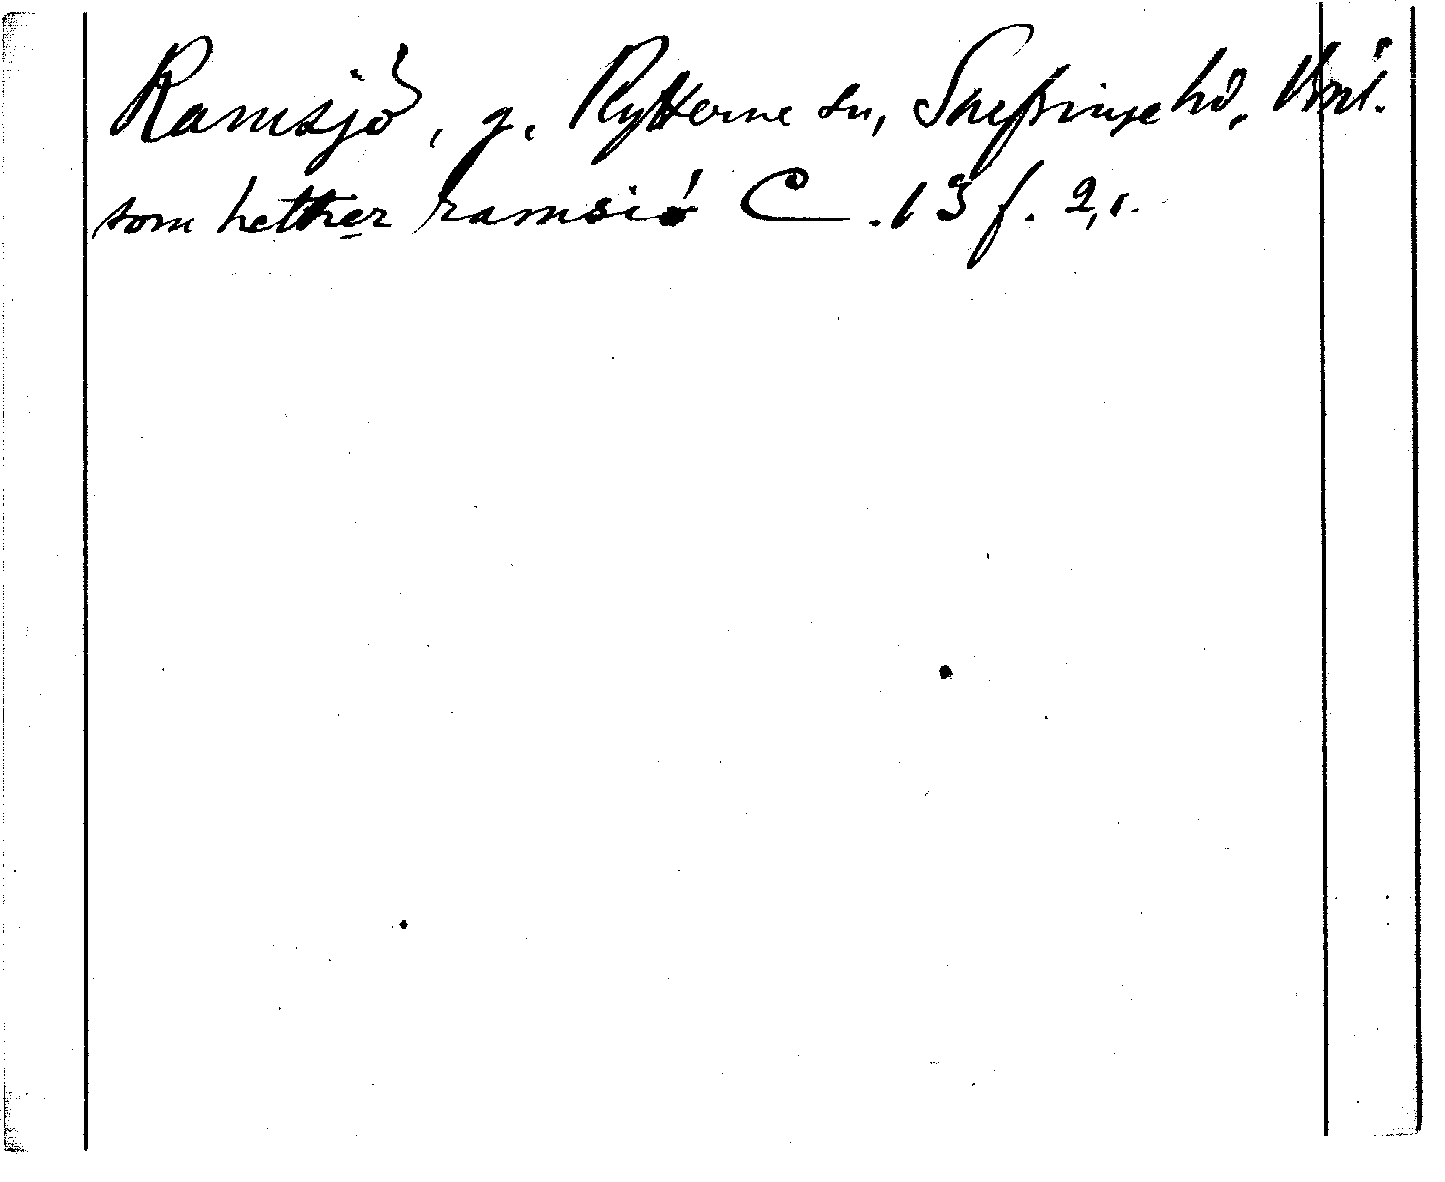 Ramsjö, g. Rytterne sn, Snefringe hd. Vml.
som hether ramsiö C. 13 f. 21.